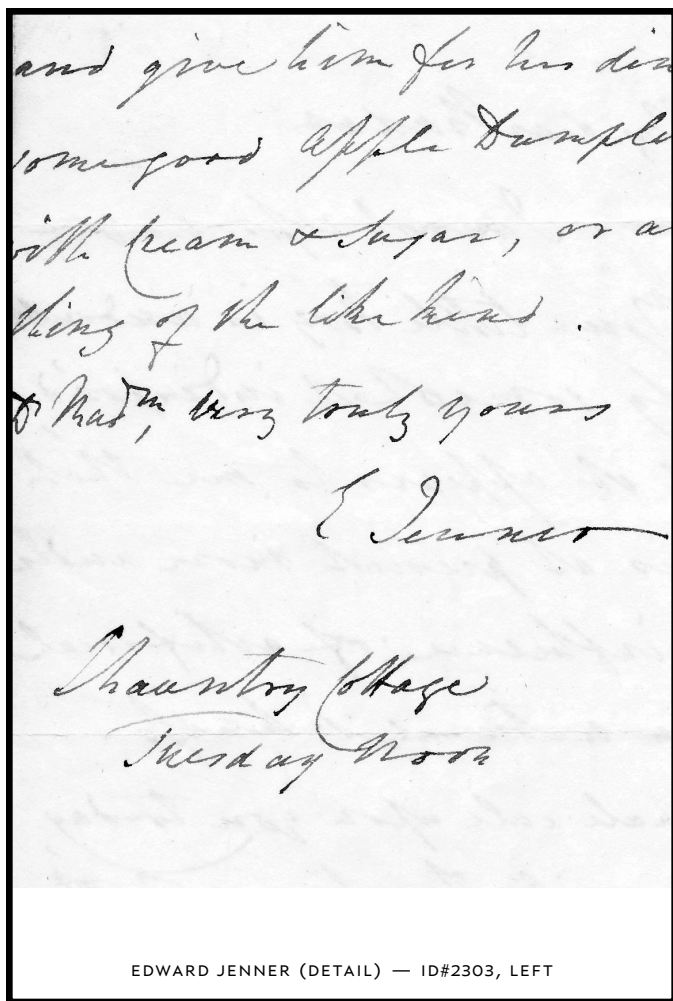 and give him for his din
some good Apple Dumpli
with Cream & Sugar, or a
thing of the like kind.
Dr Madm, very truly yours
E Jenner
Chauntry Cottage
Tuesday Noon
EDWARD JENNER (DETAIL) — ID#2303, LEFT